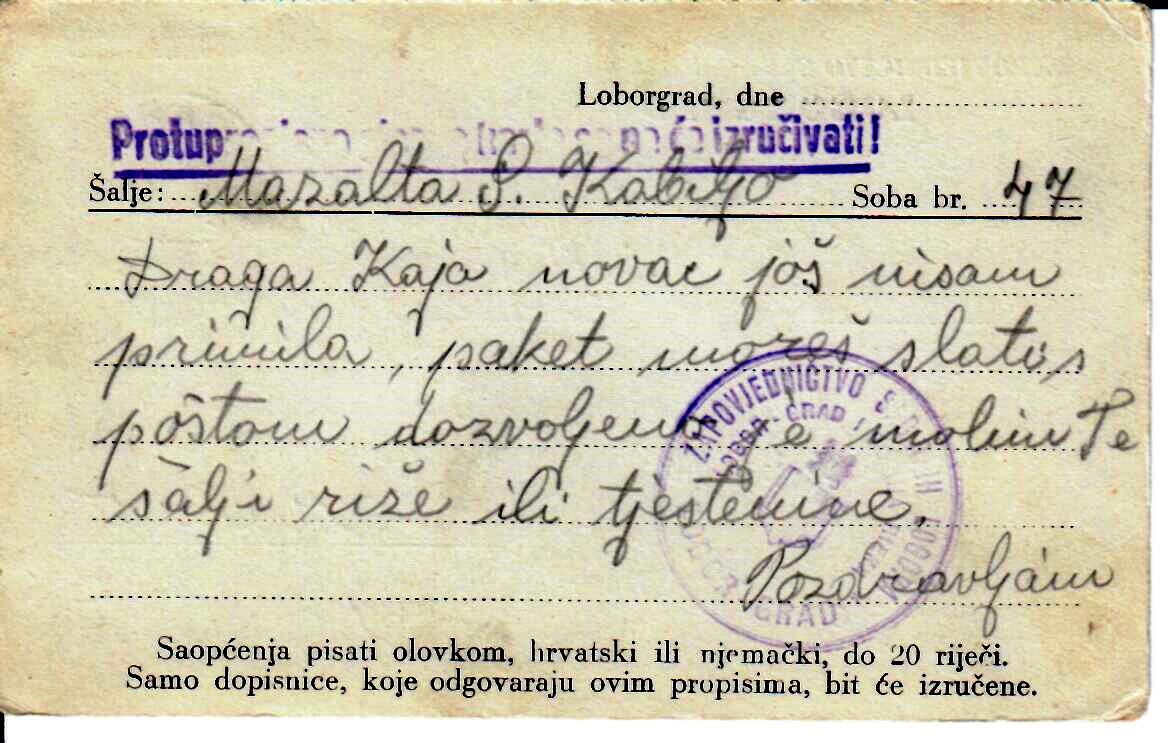 Loborgrad, dne
izručivati!
Šalje: Mazalta S. Kabiljo Soba br. 47
Draga Kaja novac još nisam
primila, paket možeš slati s
poštom dozvoljeno je molim Te
šalji riže ili tjestenine.
Pozdravljam
ZAPOVJEDNIČTVO
LOBORGRAD
Saopćenja pisati olovkom, hrvatski ili njemački, do 20 riječi.
Samo dopisnice, koje odgovaraju ovim propisima, bit će izručene.